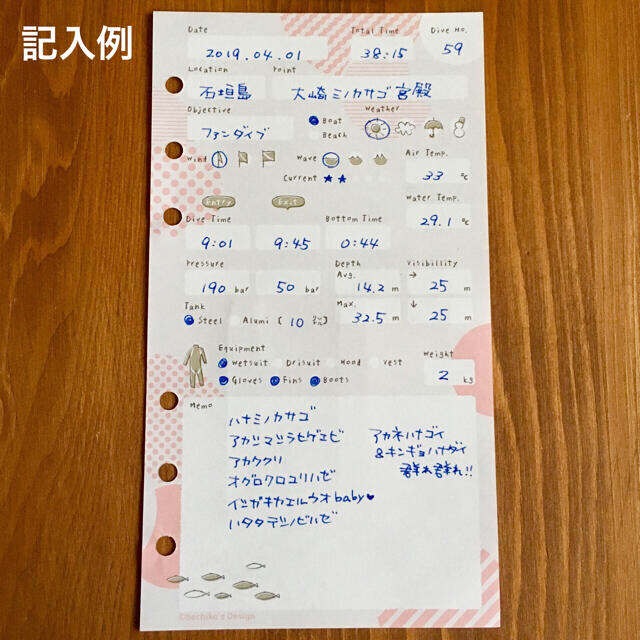 記入例
Date Total Time Dive No.
2019.04.01 38:15 59
Location Point
石垣島 大崎ミノカサゴ宮殿
Objective Weather
ファンダイブ Boat
Beach
Wind Wave Air Temp.
Current ★★ 33 ℃
Entry Exit Water Temp.
Dive Time Bottom Time 29.1 ℃
9:01 9:45 0:44
Pressure Depth Visibillity
Avg. →
190 bar 50 bar 14.2 m 25 m
Tank Max. ↓
Steel Alumi [10 リットル] 32.5 m 25 m
Equipment Weight
Wetsuit Drisuit Hood Vest
Gloves Fins Boots 2 kg
Memo
ハナミノカサゴ
アカシマシラヒゲエビ アカネハナゴイ
アカククリ &キンギョハナダイ
オグロクロユリハゼ 群れ群れ!!
イシガキカエルウオbaby♥
ハタタテシノビハゼ
©hachiko's Design